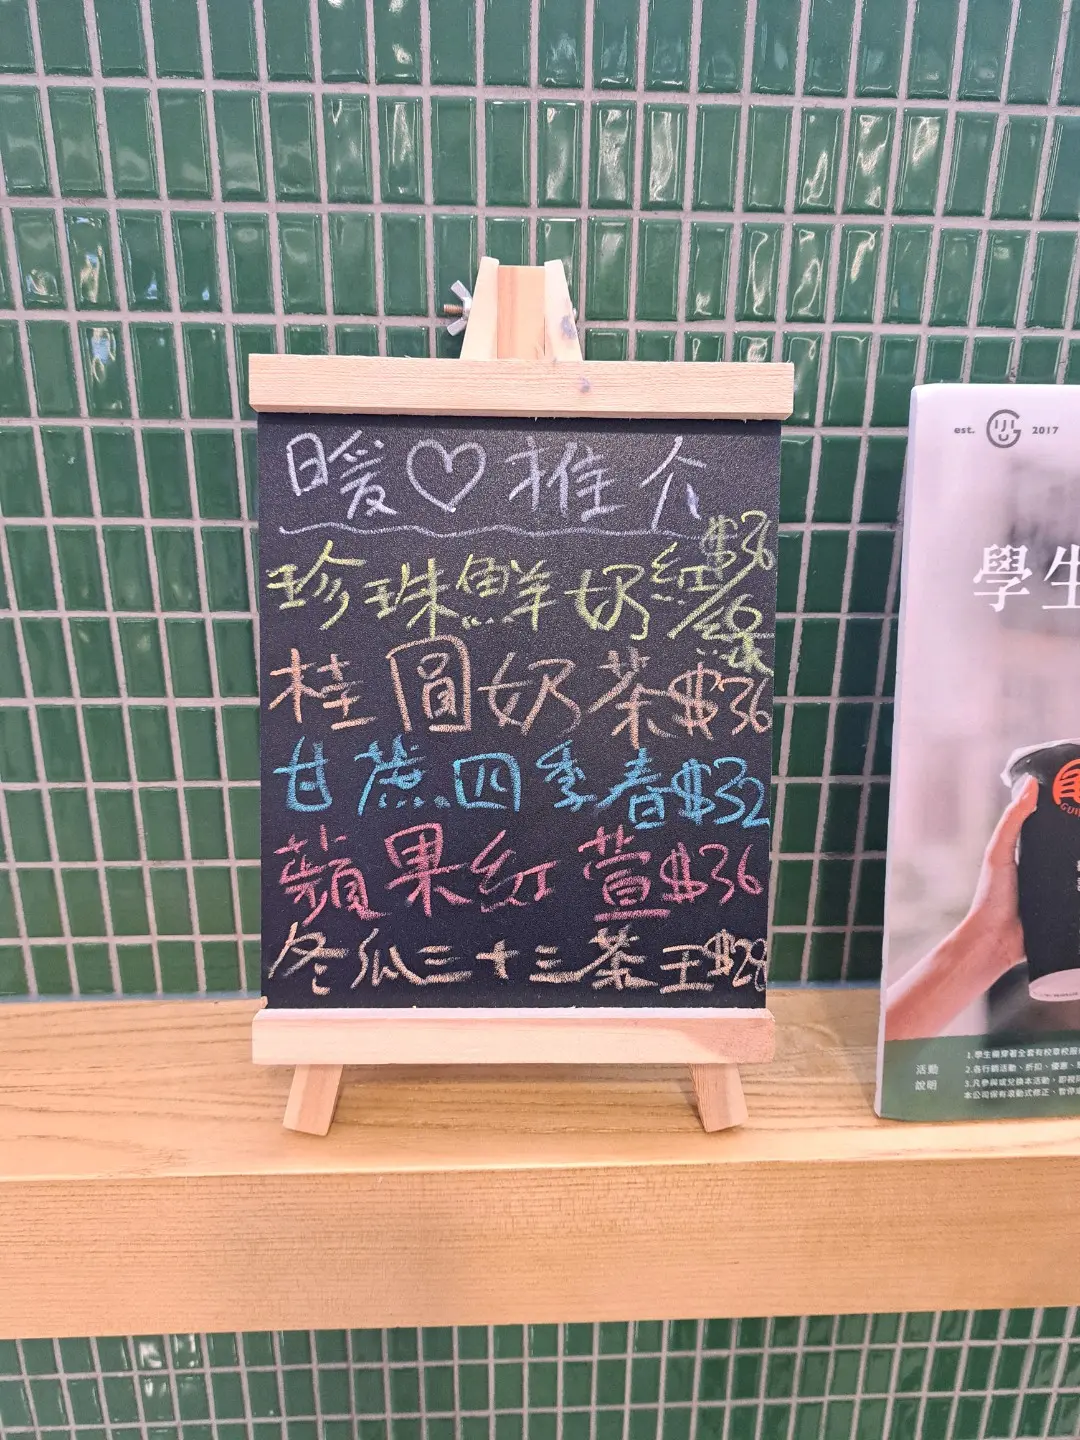 暖♡推介
珍珠鮮奶紅/綠 $36
桂圓奶茶$36
甘蔗四季春$32
蘋果紅萱$36
冬瓜三十三茶王$28
est. 2017
學生
活動
說明
1.學生需穿著全套有校章校服
2.各行銷活動、折扣、優惠、
3.凡參與或兌換本活動,即視
本公司保有滾動式修正、暫停